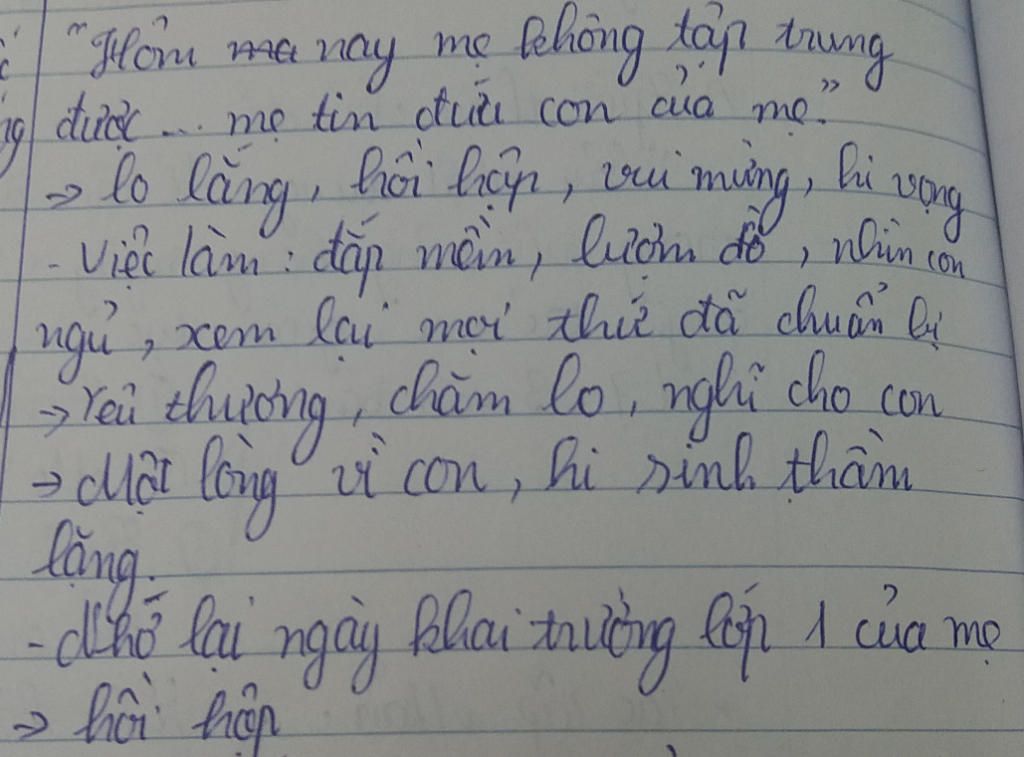 "Hôm nay mẹ không tập trung
được... mẹ tin đứa con của mẹ."
⇒ lo lắng, hồi hộp, vui mừng, hi vọng
- Việc làm: đắp mền, lượm đồ, nhìn con
ngủ, xem lại mọi thứ đã chuẩn bị
→ Yêu thương, chăm lo, nghĩ cho con
→ Một lòng vì con, hi sinh thầm
lặng.
- Nhớ lại ngày khai trường lớp 1 của mẹ
⇒ hồi hộp